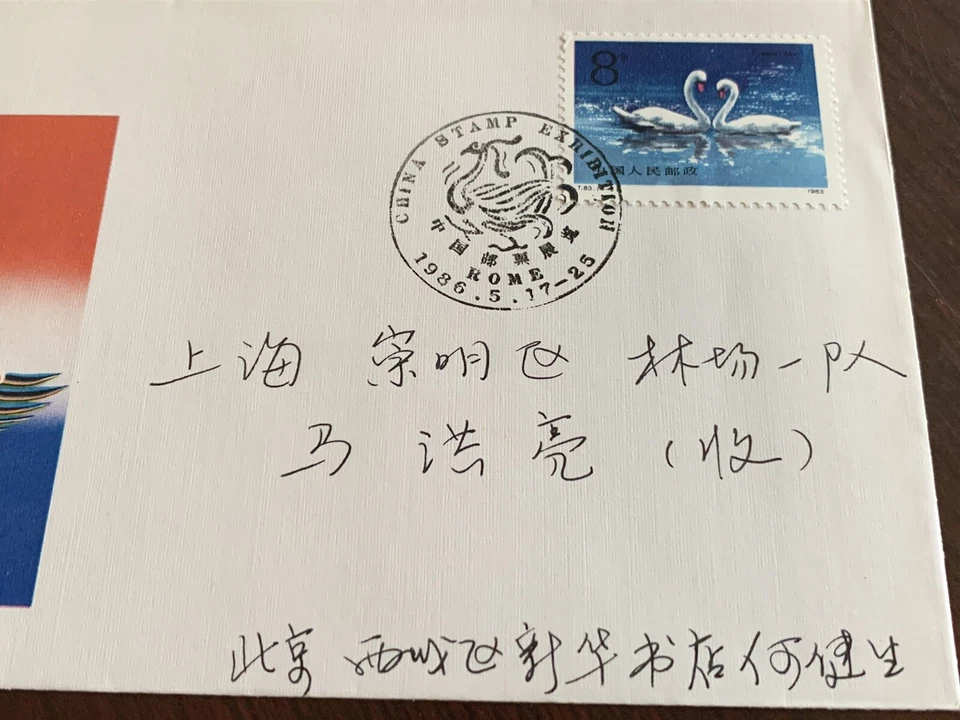 8分
中国人民邮政
T.83.
1983
CHINA STAMP EXHIBITION
中国邮票展览
ROME
1986.5.17-25
上海 崇明区 林场一队
马洪亮（收）
北京 西城区新华书店何健生